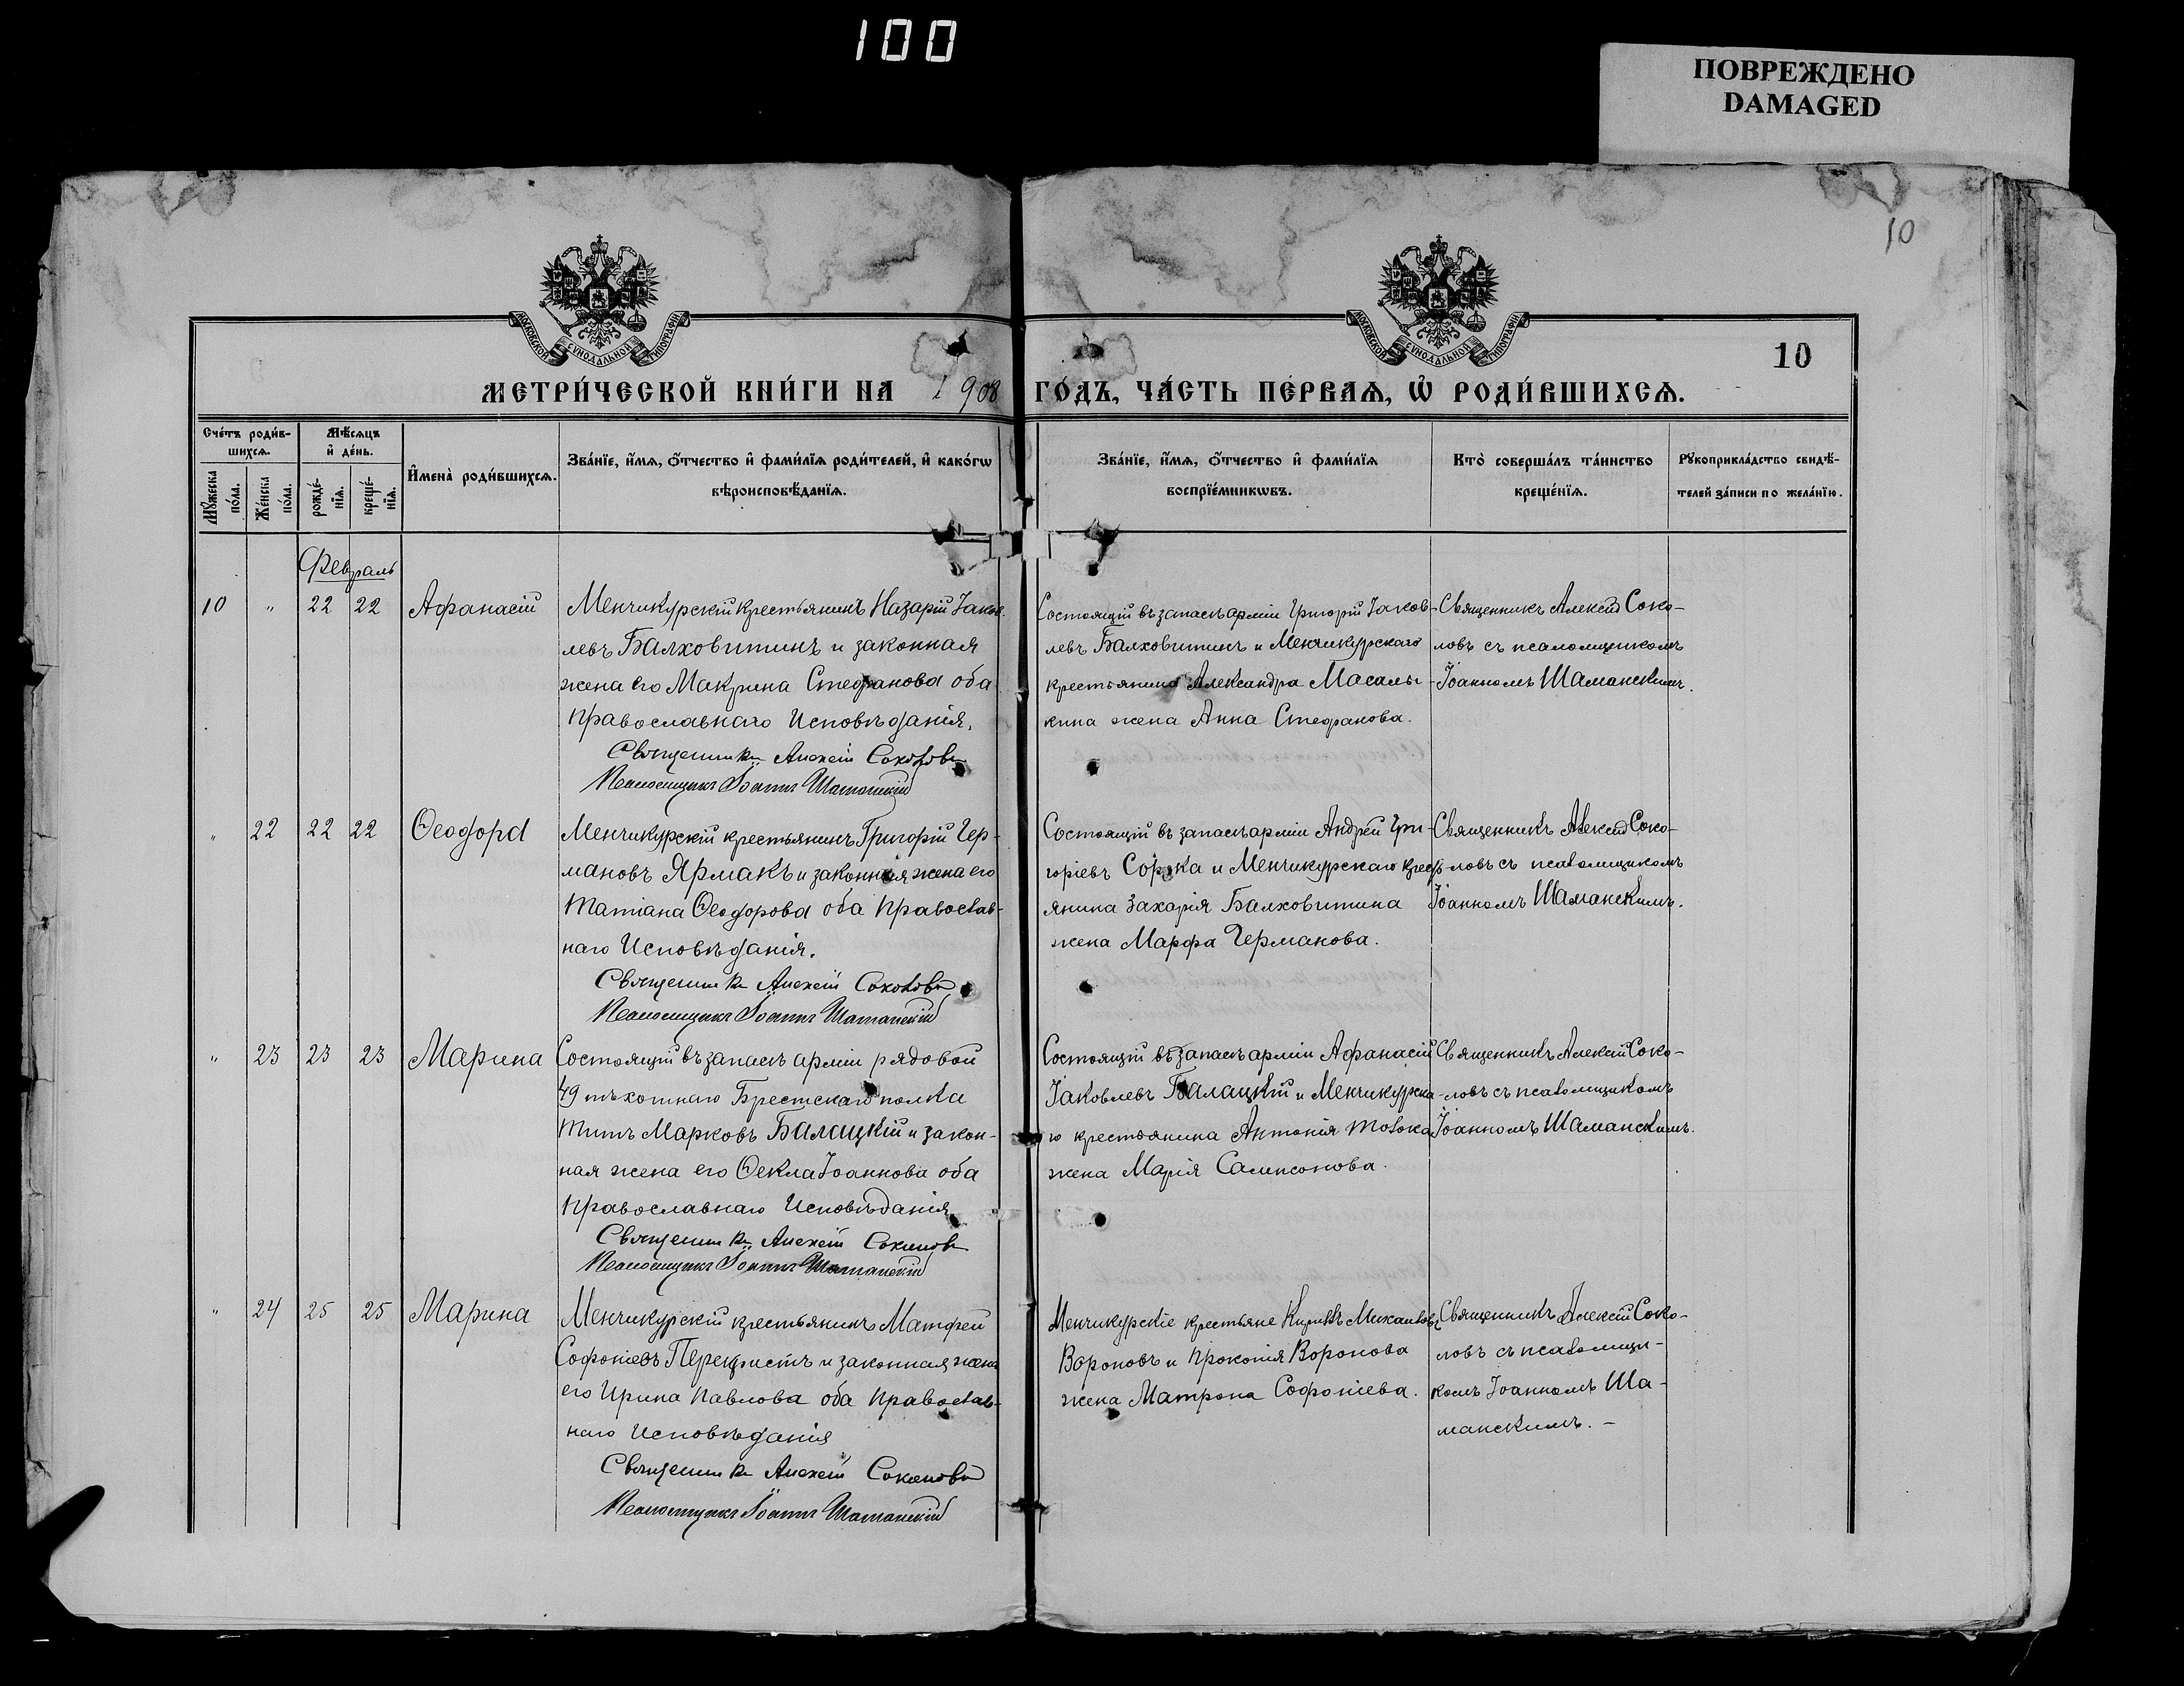 100
ПОВРЕЖДЕНО
DAMAGED
10
10
МОСКОВСКОЙ СѴНОДАЛЬНОЙ ТИПОГРАФІИ
МОСКОВСКОЙ СѴНОДАЛЬНОЙ ТИПОГРАФІИ
МЕТРИ́ЧЕСКОЙ КНИ́ГИ НА 1908 ГО́ДЪ, ЧА́СТЬ ПЕ́РВАѦ, Ѡ҆ РОДИ́ВШИХСѦ.
Сче́тъ роди́в-
шихсѧ.
Мꙋ́жеска по́ла.
Же́нска по́ла.
Мѣ́сѧцъ
и҆ де́нь.
рожде́-
нїѧ.
креще́-
нїѧ.
И҆мена̀ роди́вшихсѧ.
Зва́нїе, и҆́мѧ, ѻ҆́тчество и҆ фами́лїѧ роди́телей, и҆ како́гѡ
вѣроисповѣ́данїѧ.
Зва́нїе, и҆́мѧ, ѻ҆́тчество и҆ фами́лїѧ
воспрїе́мникѡвъ.
Кто̀ соверша́лъ та́инство
креще́нїѧ.
Рꙋкоприкла́дство свидѣ́-
телей за́писи по жела́нїю.
Февраль
10 " 22 22 Афанасій
Менчикурскій крестьянинъ Назарій Іаков-
левъ Балховитинъ и законная
жена его Макрина Стефанова оба
православнаго Исповѣданія.
Священникъ Алексій Соколовъ
Псаломщикъ Іоаннъ Шаманскій
Состоящій въ запасѣ арміи Григорій Іаков-
левъ Балховитинъ и Менчикурскаго
крестьянина Александра Масалы-
кина жена Анна Стефанова.
Священникъ Алексій Соко-
ловъ съ псаломщикомъ
Іоанномъ Шаманскимъ.
" 22 22 22 Ѳеодора
Менчикурскій крестьянинъ Григорій Гер-
мановъ Ярмакъ и законная жена его
Татіана Ѳеодорова оба православ-
наго Исповѣданія.
Священникъ Алексій Соколовъ
Псаломщикъ Іоаннъ Шаманскій
Состоящій въ запасѣ арміи Андрей Гри-
горіевъ Сорока и Менчикурскаго крест-
янина Захарія Балховитина
жена Марфа Германова.
Священникъ Алексій Соко-
ловъ съ псаломщикомъ
Іоанномъ Шаманскимъ.
" 23 23 23 Марина
Состоящій въ запасѣ арміи рядовой
49 пѣхотнаго Брестскаго полка
Титъ Марковъ Балацкій и закон-
ная жена его Ѳекла Іоаннова оба
православнаго Исповѣданія
Священникъ Алексій Соколовъ
Псаломщикъ Іоаннъ Шаманскій
Состоящій въ запасѣ арміи Афанасій
Іаковлевъ Балацкій и Менчикурска-
го крестьянина Антонія Молока
жена Марія Самсонова.
Священникъ Алексій Соко-
ловъ съ псаломщикомъ
Іоанномъ Шаманскимъ.
" 24 25 25 Марина
Менчикурскій крестьянинъ Матфей
Софоніевъ Перехристъ и законная жена
его Ирина Павлова оба православ-
наго Исповѣданія
Священникъ Алексій Соколовъ
Псаломщикъ Іоаннъ Шаманскій
Менчикурскіе крестьяне Кирикъ Михаиловъ
Вороновъ и Прокопія Воронова
жена Матрона Софоніева.
Священникъ Алексій Соко-
ловъ съ псаломщи-
комъ Іоанномъ Ша-
манскимъ. -